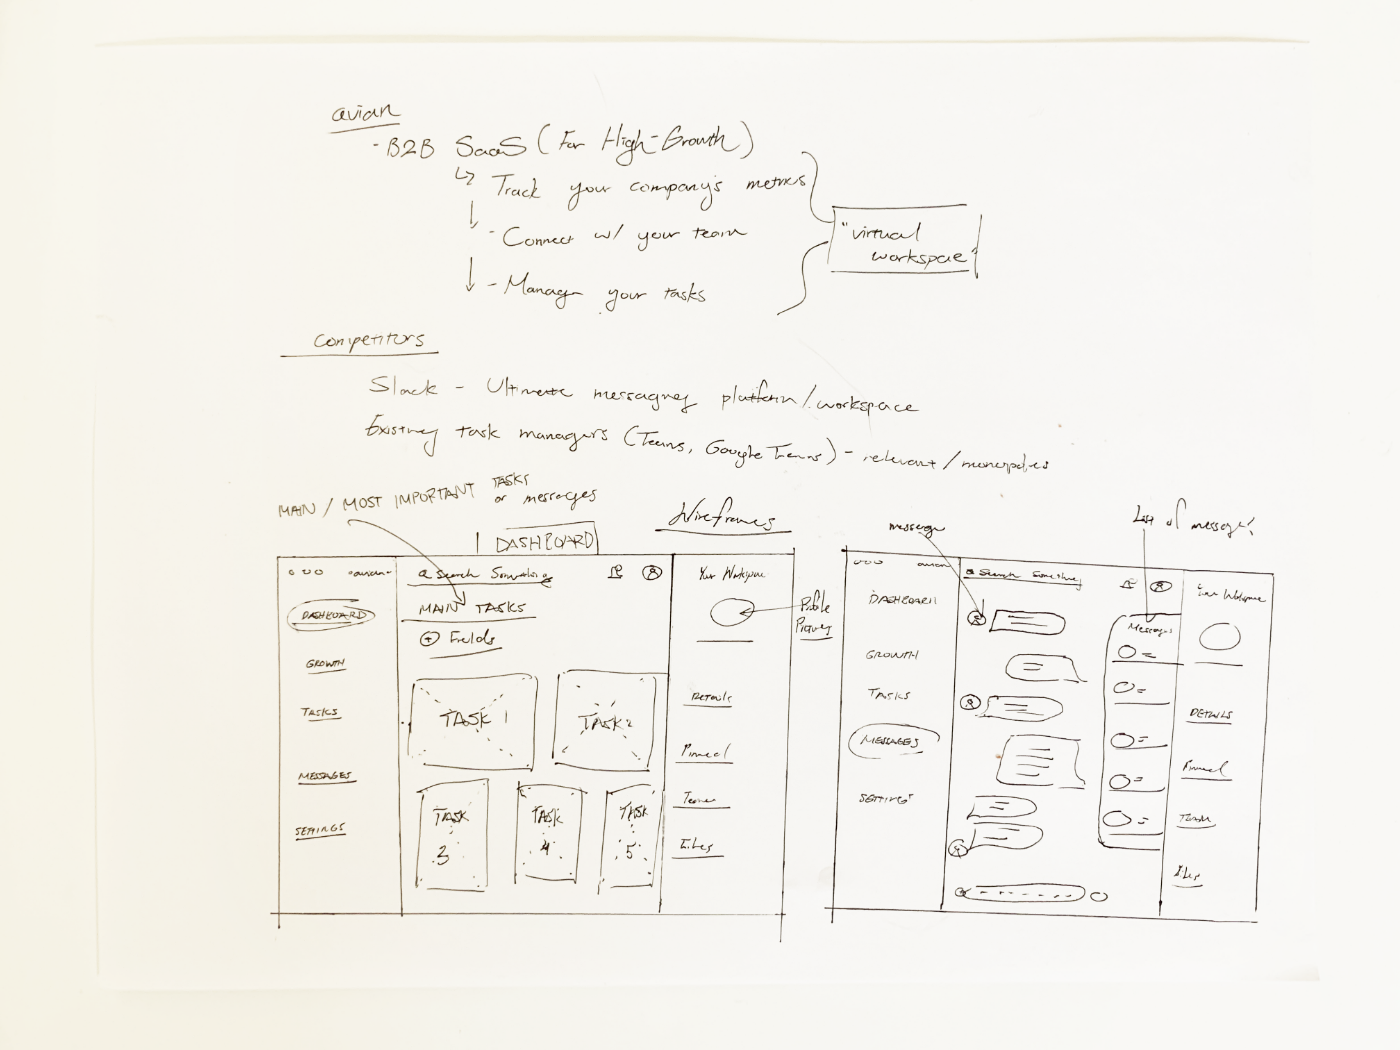 avian
- B2B SaaS (For High-Growth)
↳ Track your company's metrics
↓ - Connect w/ your team
↓ - Manage your tasks
"virtual
workspace"
Competitors
Slack - Ultimate messaging platform/workspace
Existing task managers (Teams, Google Teams) - relevant/monopolies
MAIN / MOST IMPORTANT TASKS
or messages
Wireframes
DASHBOARD
avian
Search Something
Your Workspace
DASHBOARD
MAIN TASKS
+ Fields
Profile
Picture
GROWTH
TASKS
MESSAGES
SETTINGS
TASK 1
TASK 2
TASK
3
TASK
4
TASK
5
Details
Pinned
Team
Files
message
List of messages
avian
Search Something
Your Workspace
DASHBOARD
GROWTH
TASKS
MESSAGES
SETTINGS
Messages
DETAILS
Pinned
TEAM
Files